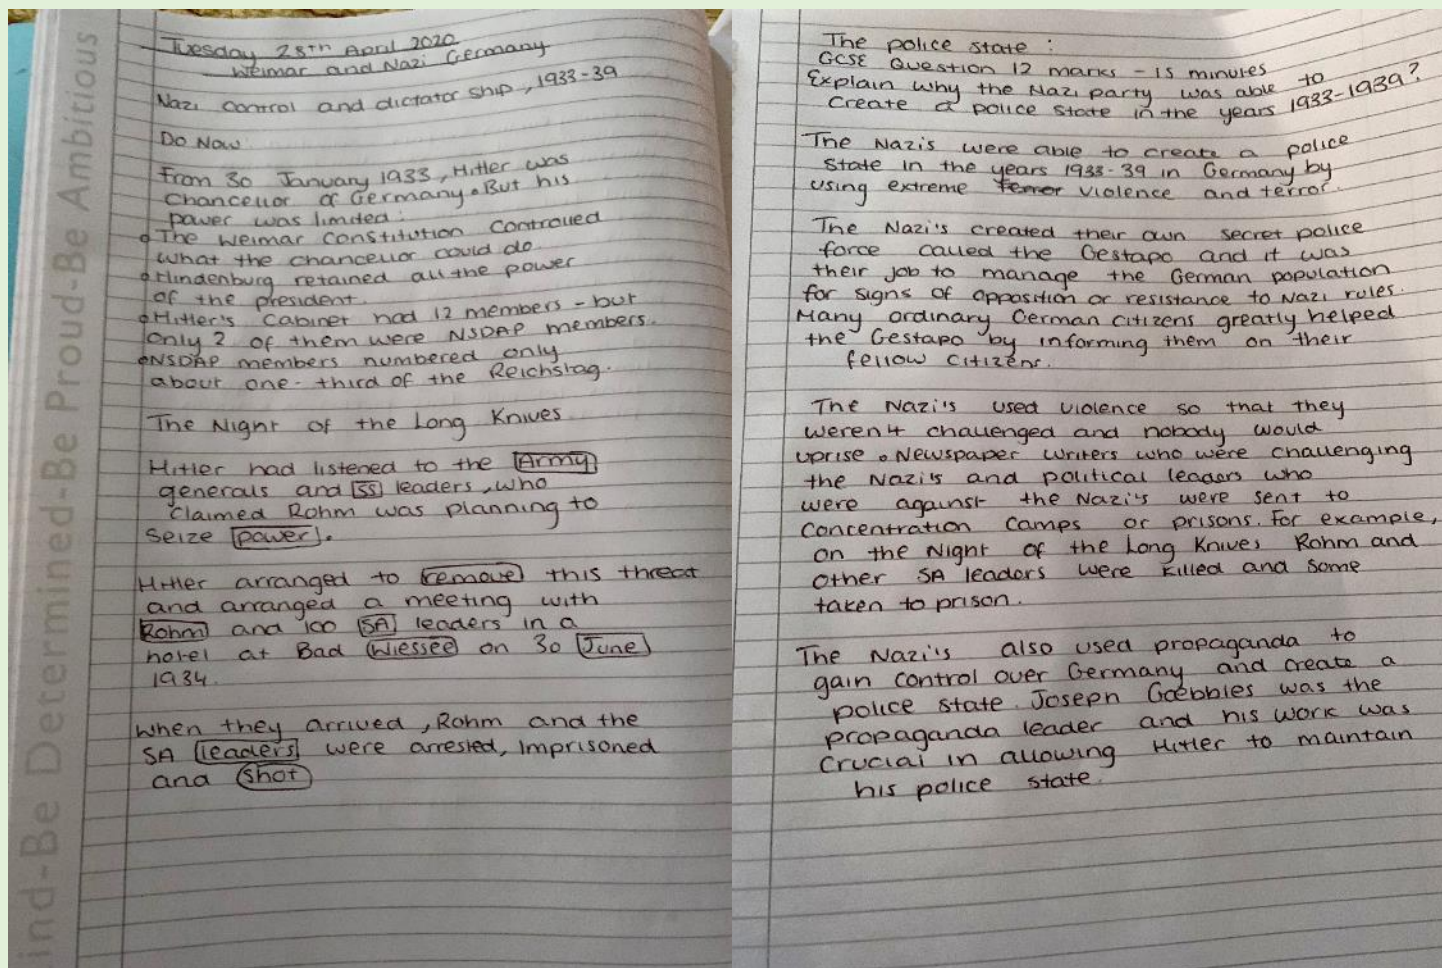 ind-Be Determined-Be Proud-Be Ambitious
Tuesday 28th April 2020
Weimar and Nazi Germany
Nazi control and dictator ship, 1933-39
Do Now
From 30 January 1933, Hitler was
Chancellor of Germany. But his
power was limited:
The Weimar Constitution controlled
what the chancellor could do.
Hindenburg retained all the power
of the president.
Hitler's Cabinet had 12 members - but
only 2 of them were NSDAP members.
NSDAP members numbered only
about one-third of the Reichstag.
The Night of the Long Knives
Hitler had listened to the Army
generals and SS leaders, who
claimed Rohm was planning to
seize power.
Hitler arranged to remove this threat
and arranged a meeting with
Rohm and 100 SA leaders in a
hotel at Bad Wiessee on 30 June
1934.
When they arrived, Rohm and the
SA leaders were arrested, Imprisoned
and shot
The police state:
GCSE Question 12 marks - 15 minutes
Explain why the Nazi party was able to
create a police state in the years 1933-1939?
The Nazis were able to create a police
state in the years 1933-39 in Germany by
using extreme violence and terror.
The Nazi's created their own secret police
force called the Gestapo and it was
their job to manage the German population
for signs of opposition or resistance to Nazi rules.
Many ordinary German citizens greatly helped
the Gestapo by informing them on their
fellow citizens.
The Nazi's used violence so that they
weren't challenged and nobody would
uprise. Newspaper writers who were challenging
the Nazi's and political leaders who
were against the Nazi's were sent to
concentration camps or prisons. For example,
on the Night of the Long Knives Rohm and
other SA leaders were killed and some
taken to prison.
The Nazi's also used propaganda to
gain control over Germany and create a
police state. Joseph Goebbles was the
propaganda leader and his work was
crucial in allowing Hitler to maintain
his police state.